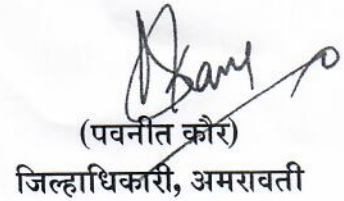 (पवनीत कौर)
जिल्हाधिकारी, अमरावती